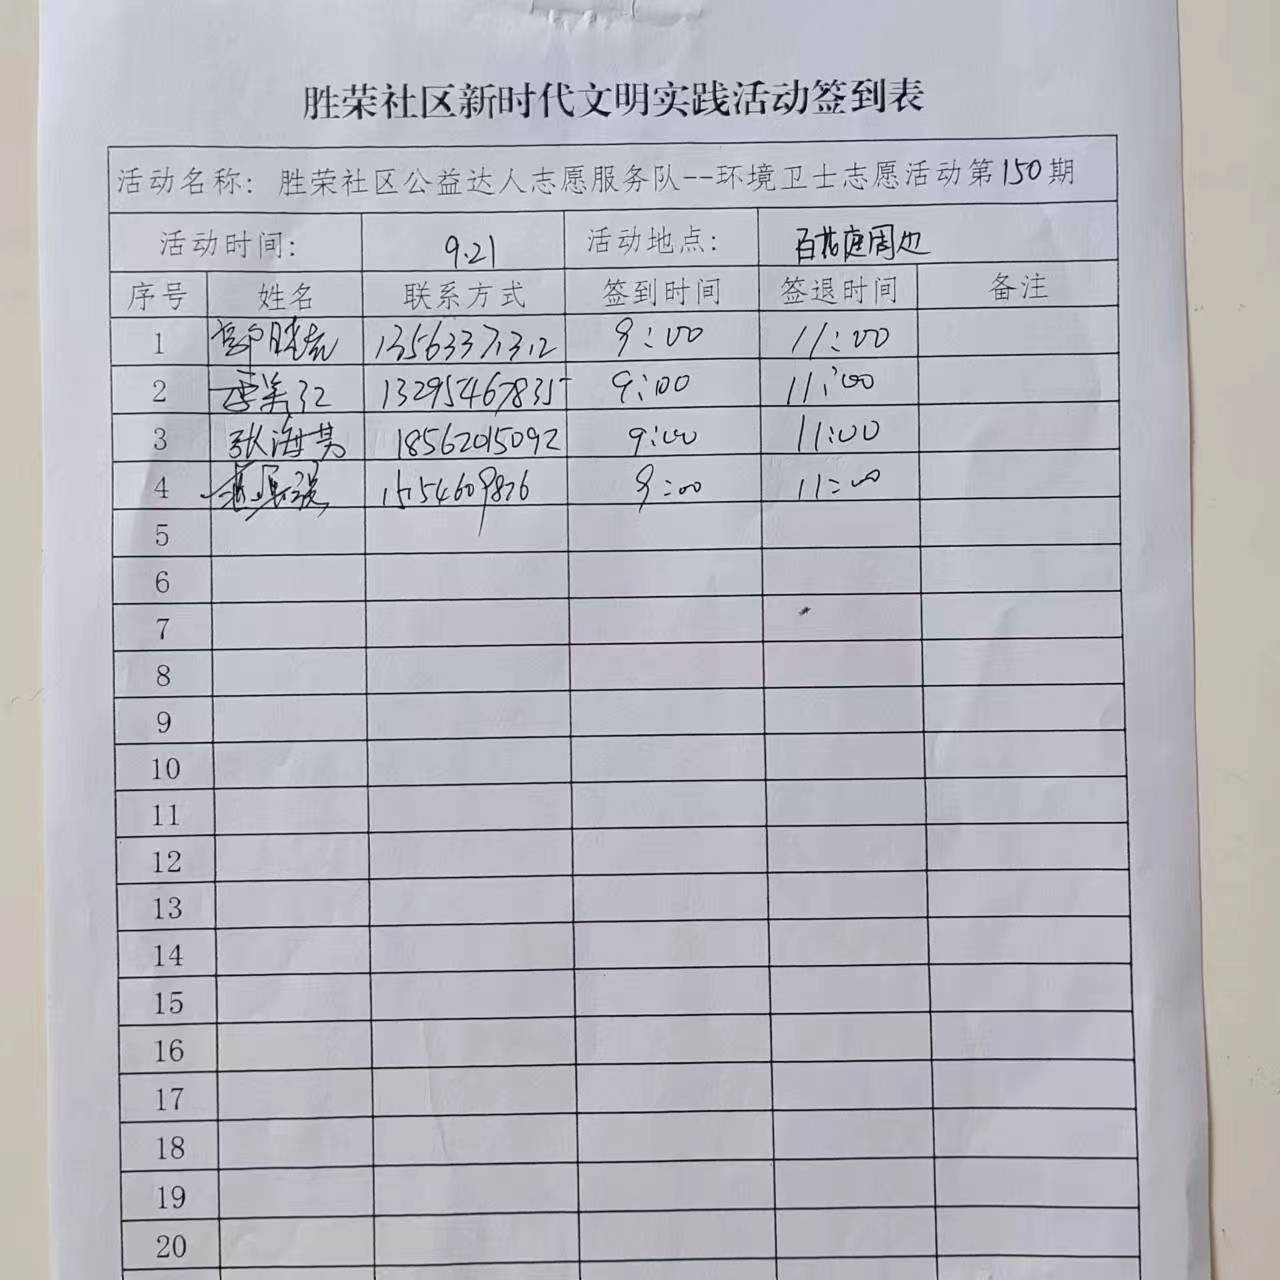 胜荣社区新时代文明实践活动签到表
活动名称: 胜荣社区公益达人志愿服务队--环境卫士志愿活动第150期
活动时间: 9.21 活动地点: 百花庭周边
序号 姓名 联系方式 签到时间 签退时间 备注
1 9:00 11:00
2 13295467835 9:00 11:00
3 张海英 18562015092 9:00 11:00
4 9:00 11:00
5
6
7
8
9
10
11
12
13
14
15
16
17
18
19
20